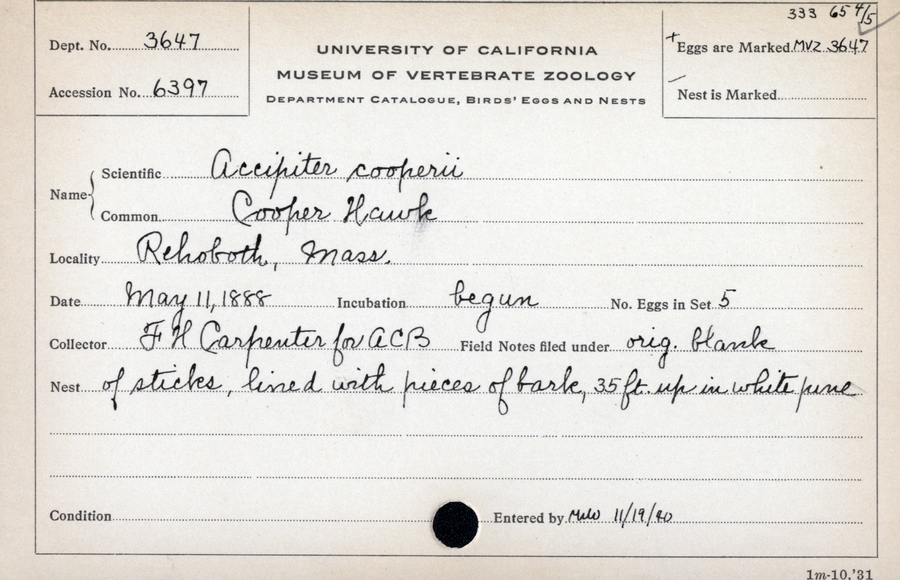 333 65 4/5
Dept. No. 3647
UNIVERSITY OF CALIFORNIA
MUSEUM OF VERTEBRATE ZOOLOGY
DEPARTMENT CATALOGUE, BIRDS' EGGS AND NESTS
+Eggs are Marked MVZ 3647
Accession No. 6397
Nest is Marked
Name
Scientific Accipiter cooperii
Common Cooper Hawk
Locality Rehoboth, Mass.
Date May 11, 1888 Incubation begun No. Eggs in Set 5
Collector F H Carpenter for ACB Field Notes filed under orig. blank
Nest of sticks, lined with pieces of bark, 35 ft. up in white pine
Condition Entered by 11/19/40
1m-10,'31